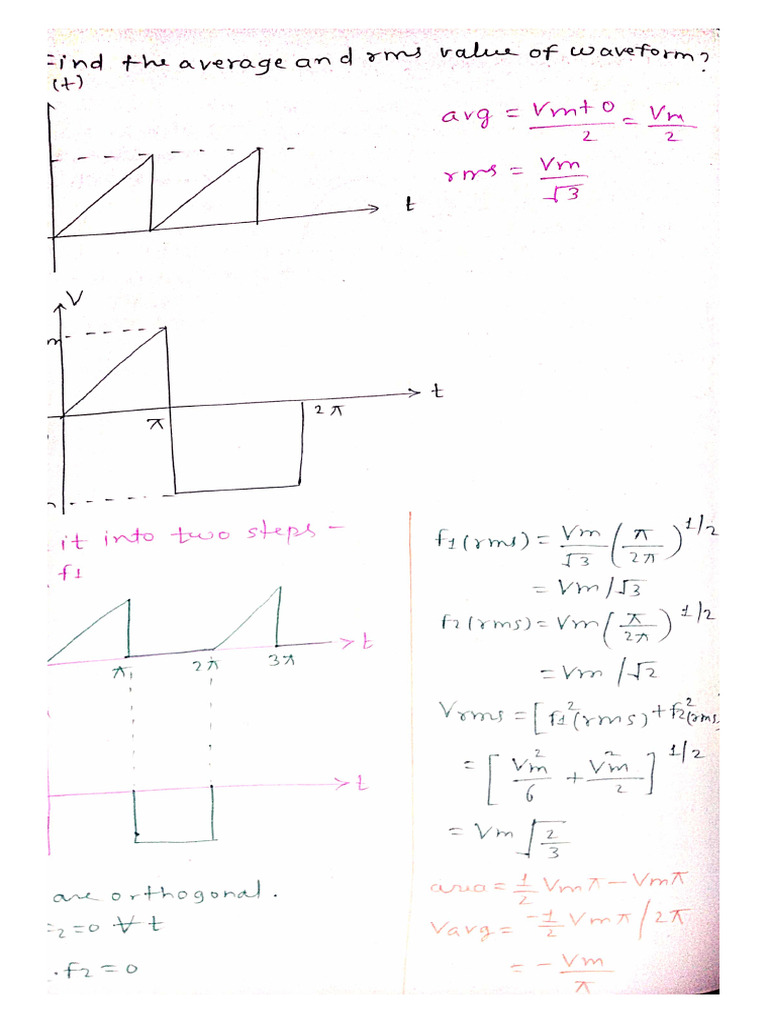 Find the average and rms value of waveform?
(t)
avg = Vm+0/2 = Vm/2
rms = Vm/√3
t
V
m
t
π
2π
it into two steps -
f1
t
π
2π
3π
t
are orthogonal.
=2=0 ∀ t
.f2=0
f1(rms) = Vm/√3 (π/2π)^1/2
= Vm/√3
f2(rms) = Vm(π/2π)^1/2
= Vm/√2
Vrms = [f1²(rms) + f2²(rms
= [Vm²/6 + Vm²/2]^1/2
= Vm√2/3
area = 1/2 Vmπ - Vmπ
Vavg = -1/2 Vmπ/2π
= - Vm/π